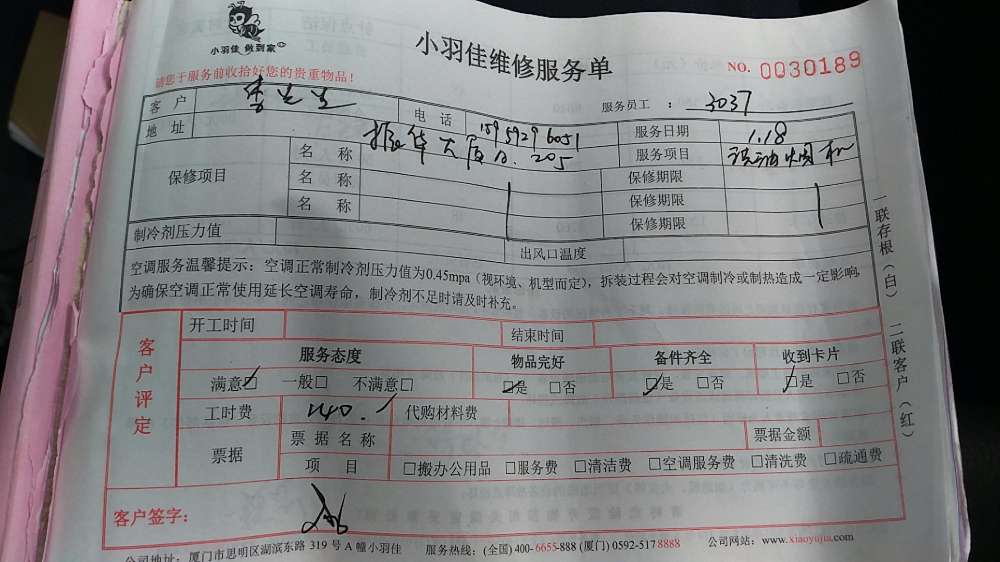 小羽佳 做到家
小羽佳维修服务单
NO. 0030189
请您于服务前收拾好您的贵重物品！
服务员工 ： 3037
客户 李先生 电话 15959296051 服务日期 1.18
地址 振华大厦B.205 服务项目 洗油烟机
保修项目 名称 保修期限
名称 保修期限
名称 保修期限
制冷剂压力值 出风口温度
空调服务温馨提示：空调正常制冷剂压力值为0.45mpa（视环境、机型而定），拆装过程会对空调制冷或制热造成一定影响，
为确保空调正常使用延长空调寿命，制冷剂不足时请及时补充。
客户评定
开工时间 结束时间
服务态度 物品完好 备件齐全 收到卡片
满意☑ 一般□ 不满意□ ☑是 □否 ☑是 □否 ☑是 □否
工时费 140. 代购材料费
票据 票据名称 票据金额
项目 □搬办公用品 □服务费 □清洁费 □空调服务费 □清洗费 □疏通费
客户签字：
公司地址：厦门市思明区湖滨东路 319 号 A 幢小羽佳 服务热线：(全国) 400-6655-888 (厦门) 0592-517 8888 公司网站：www.xiaoyujia.com
一联存根（白） 二联客户（红）